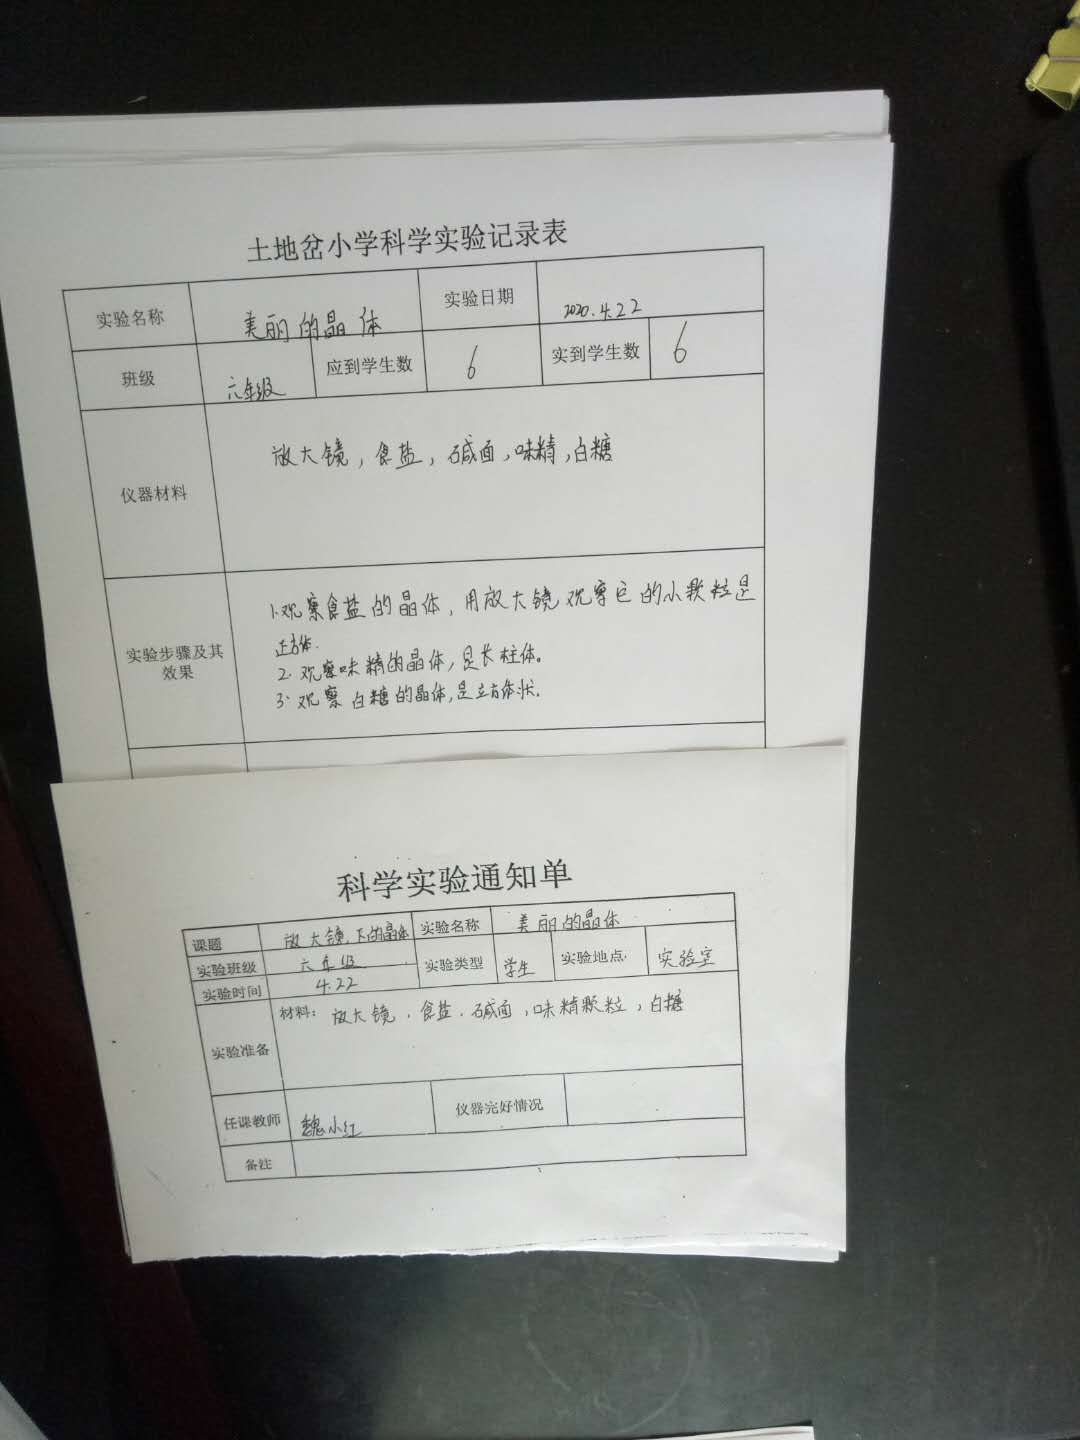 土地岔小学科学实验记录表
实验名称 美丽的晶体 实验日期 2020.4.22
班级 六年级 应到学生数 6 实到学生数 6
仪器材料 放大镜，食盐，碱面，味精，白糖
实验步骤及其效果
1.观察食盐的晶体，用放大镜观察它的小颗粒是
正方体.
2.观察味精的晶体，是长柱体。
3.观察白糖的晶体，是立方体状.
科学实验通知单
课题 放大镜下的晶体 实验名称 美丽的晶体
实验班级 六年级 实验类型 学生 实验地点 实验室
实验时间 4.22
实验准备 材料：放大镜，食盐．碱面，味精颗粒，白糖
任课教师 魏小红 仪器完好情况
备注